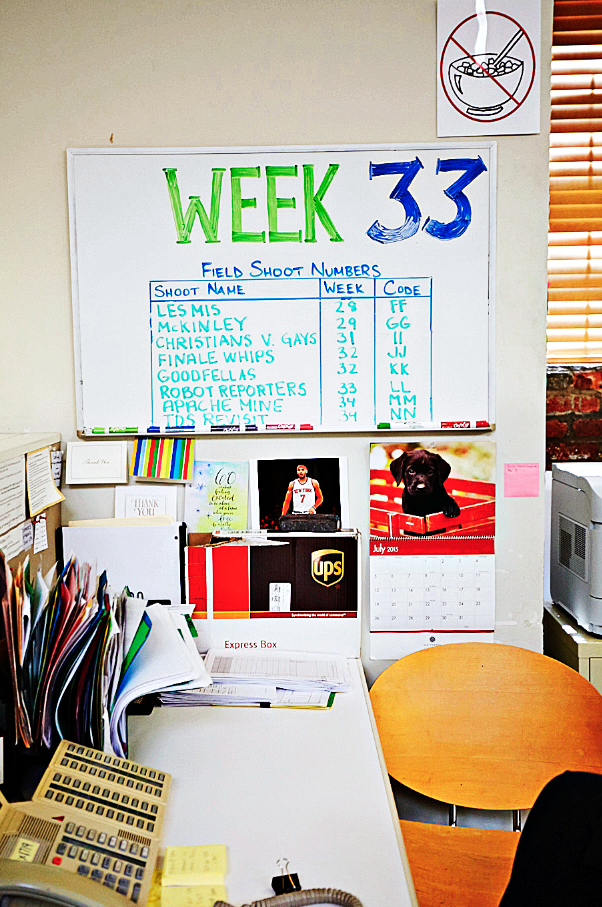 WEEK 33
FIELD SHOOT NUMBERS
SHOOT NAME WEEK CODE
LES MIS 28 FF
MCKINLEY 29 GG
CHRISTIANS V. GAYS 31 II
FINALE WHIPS 32 JJ
GOODFELLAS 32 KK
ROBOT REPORTERS 33 LL
APACHE MINE 34 MM
TDS REVISIT 34 NN
Thank You
THANK YOU
NEW YORK
7
ups
Synchronizing the world of commerce
Express Box
July 2015